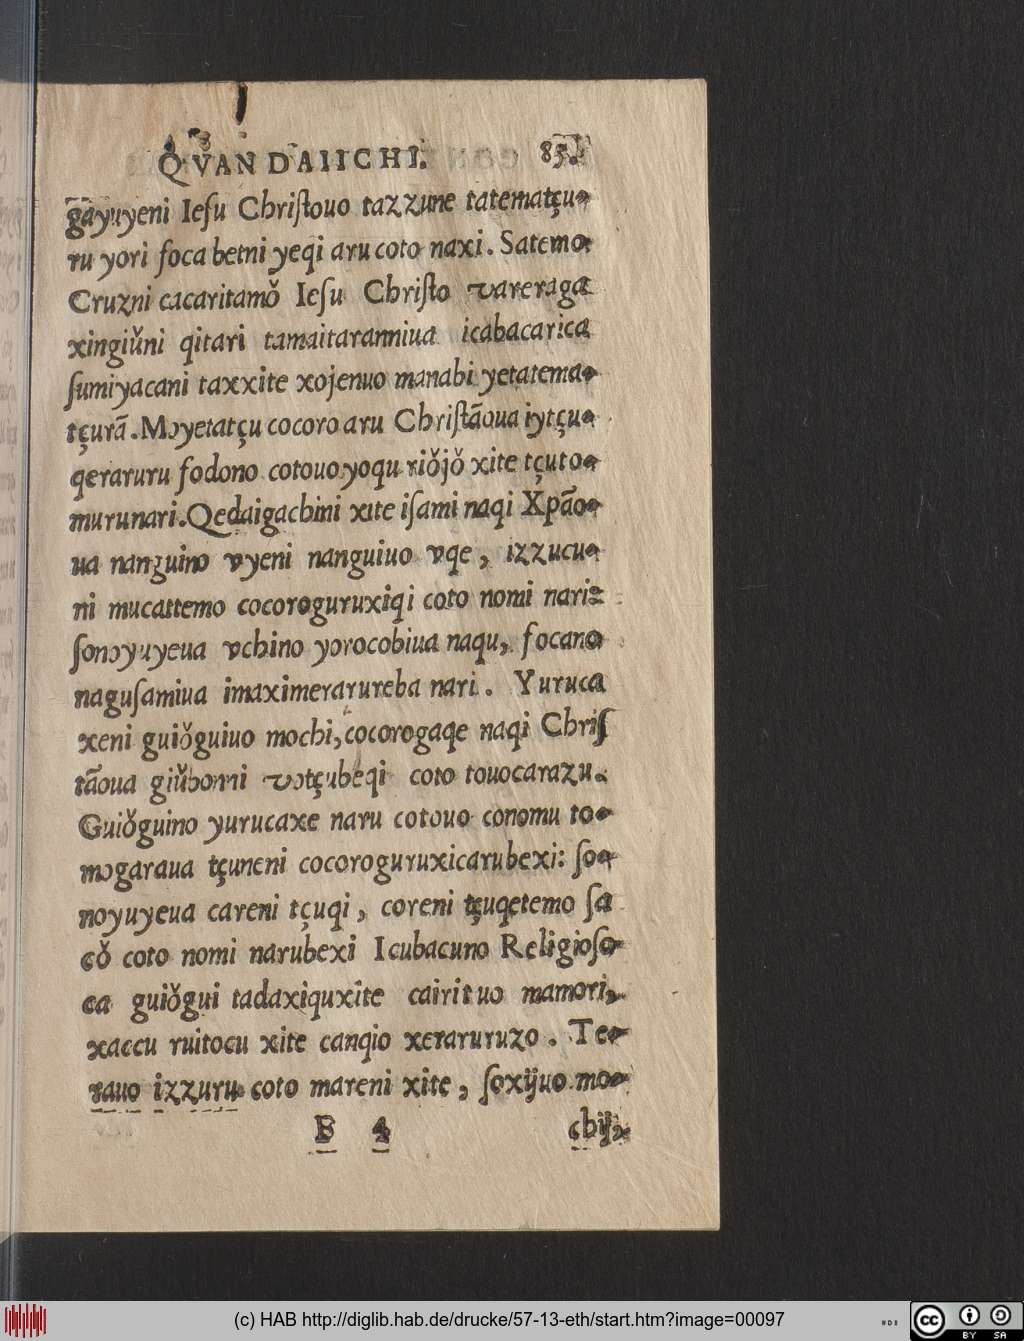 QVAN DAIICHI. 85.
gayuyeni Ieſu Chriſtouo tazzune tatematçu-
ru yori foca betni yeqi aru coto naxi. Satemo
Cruzni cacaritamǒ Ieſu Chriſto vareraga
xingiǔni qitari tamaitaranniua icabacarica
ſumiyacani taxxite xojenuo manabi yetatema-
tçurã. Mɔyetatçu cocoro aru Chriſtãoua iytçu-
qeraruru fodono cotouo yoqu riǒjǒ xite tçuto-
murunari. Qedaigachini xite iſami naqi Xpão-
ua nanguino vyeni nanguiuo vqe, izzucu-
ni mucattemo cocoroguruxiqi coto nomi nari:
ſonɔyuyeua vchino yorocobiua naqu, focano
naguſamiua imaximerarureba nari. Yuruca
xeni guiǒguiuo mochi, cocorogaqe naqi Chriſ
tãoua giǔɔonni vɔtçubeqi coto touocarazu.
Guiǒguino yurucaxe naru cotouo conomu to-
mɔgaraua tçuneni cocoroguruxicarubexi: ſo-
noyuyeua careni tçuqi, coreni tçuqetemo ſa
cǒ coto nomi narubexi Icubacuno Religioſo-
ca guiǒgui tadaxiquxite cairit uo mamori,
xaccu ruitocu xite canqio xeraruruzo. Te-
rauo izzuru coto mareni xite, ſoxijuo mo-
B 4 chij,
(c) HAB http://diglib.hab.de/drucke/57-13-eth/start.htm?image=00097
cc BY SA